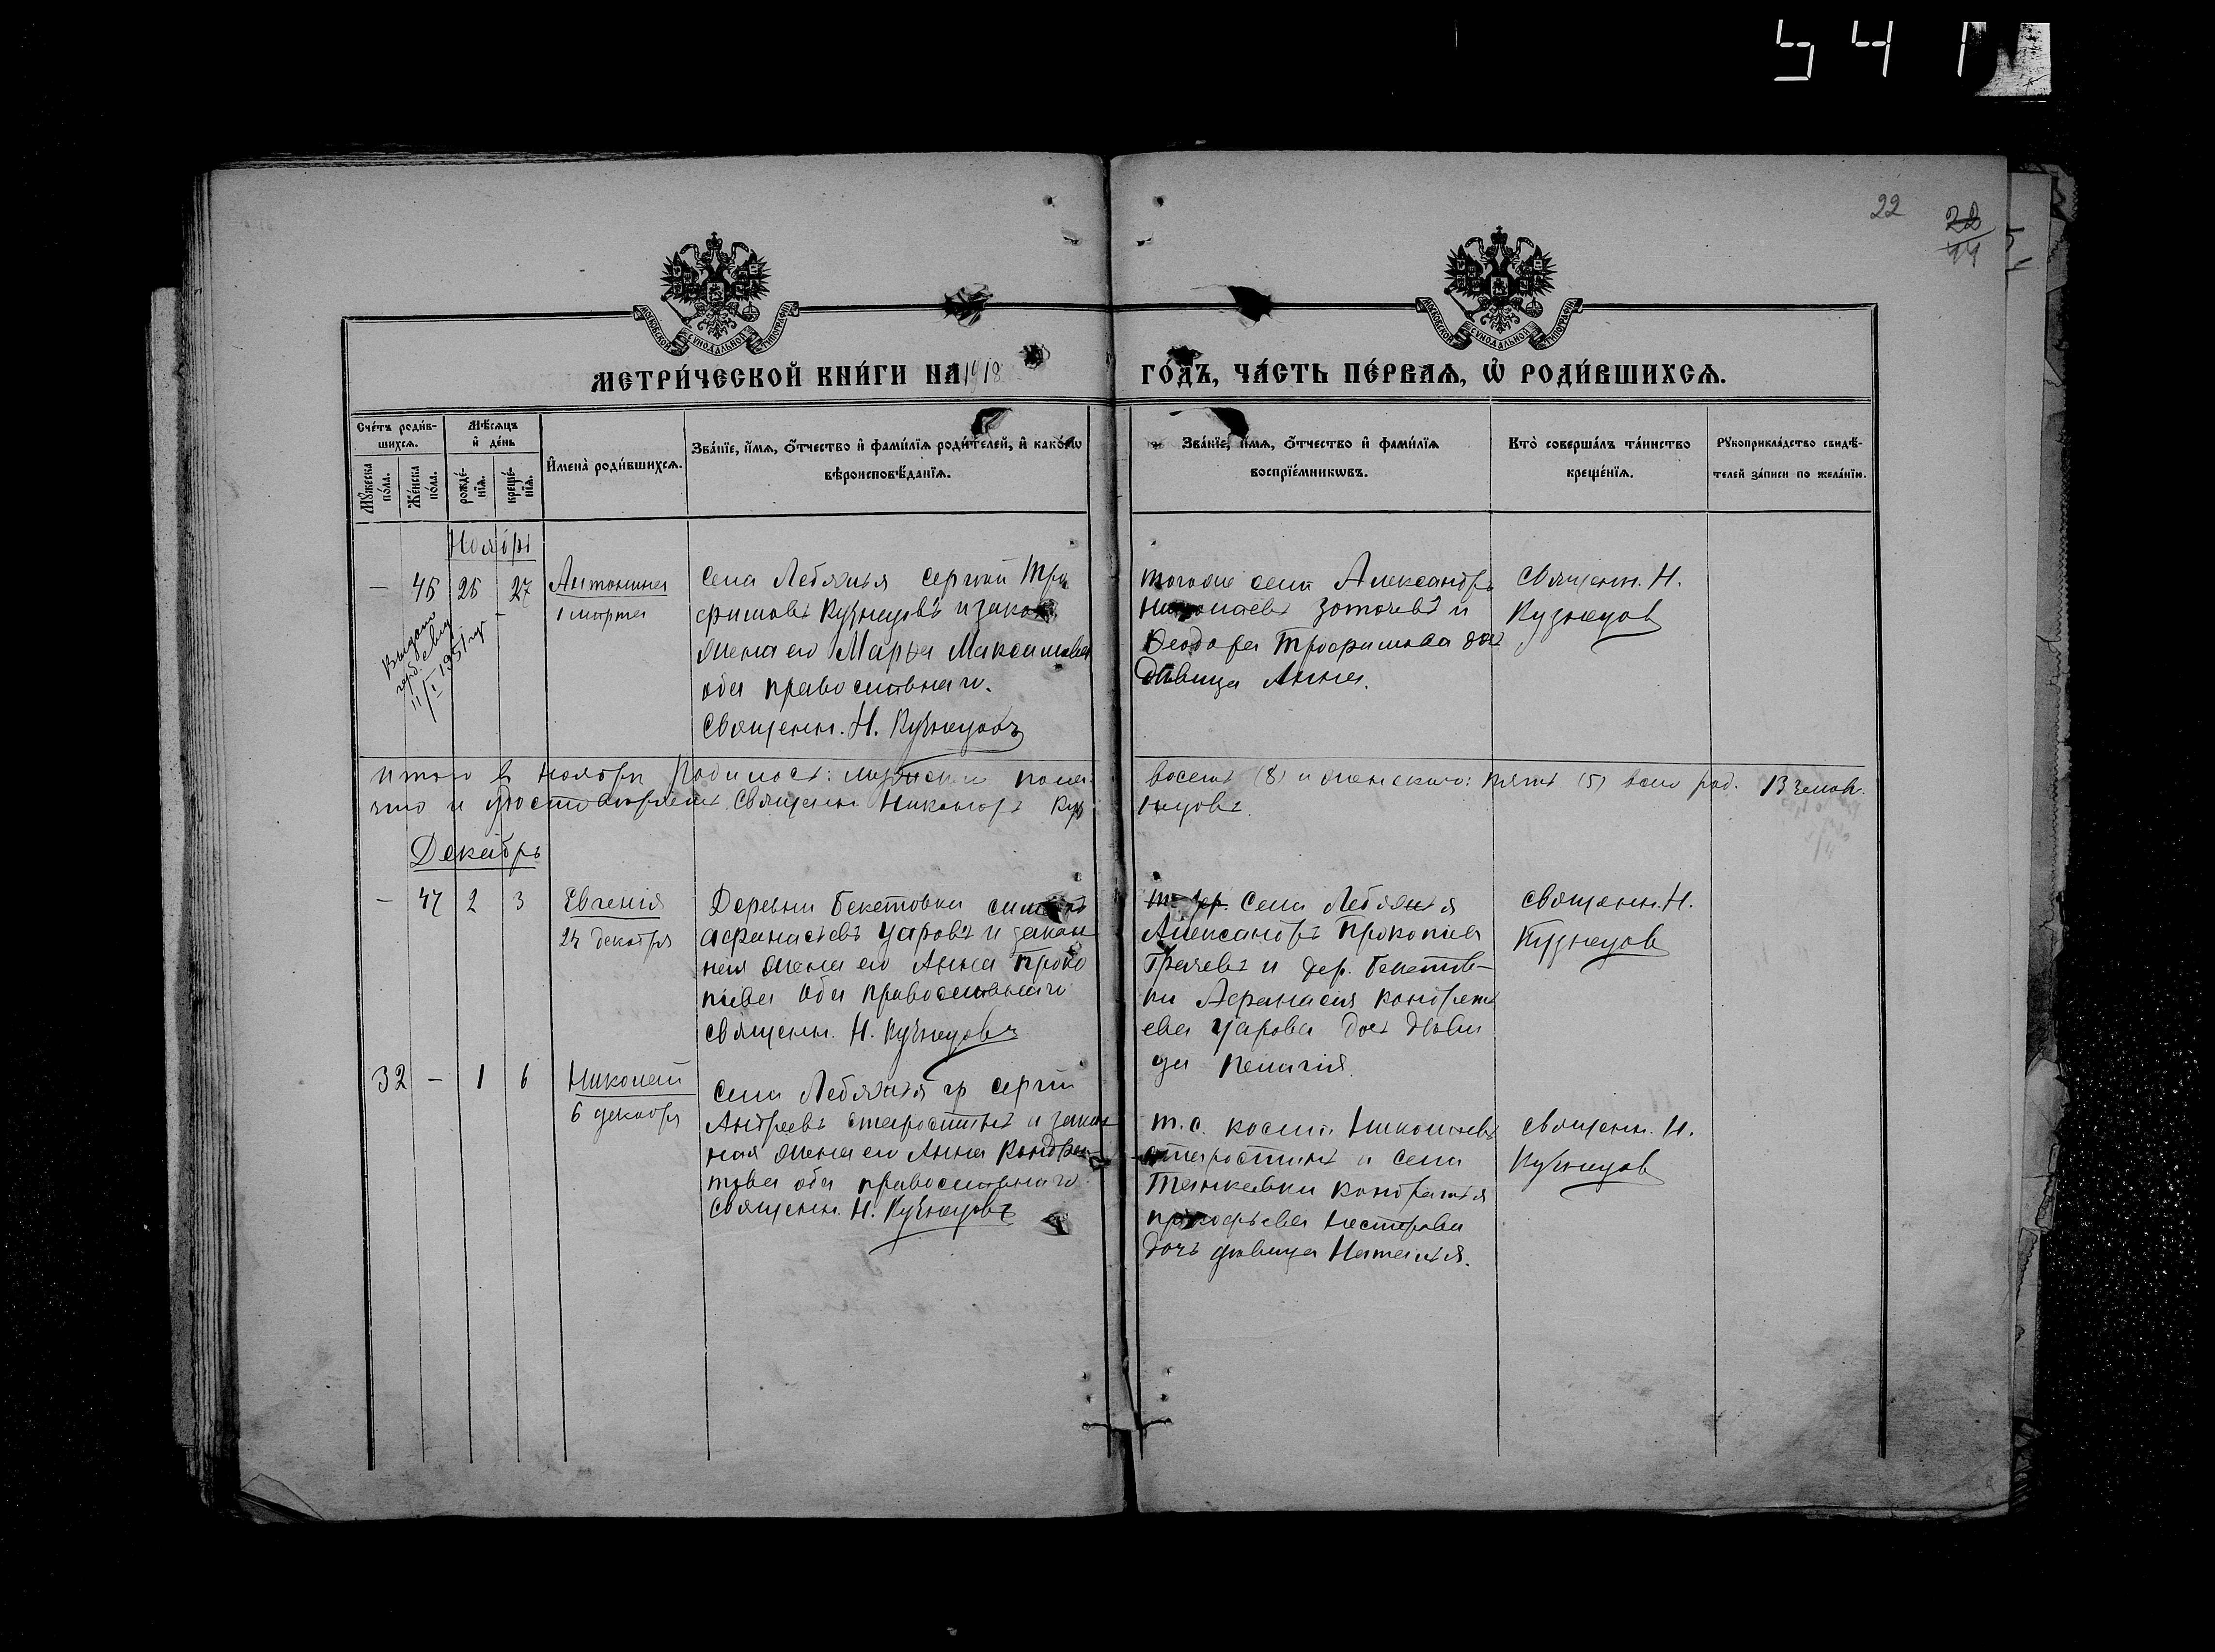 541
22
22
44
МОСКОВСКОЙ СѴНОДАЛЬНОЙ ТИПОГРАФІИ
МОСКОВСКОЙ СѴНОДАЛЬНОЙ ТИПОГРАФІИ
МЕТРИ́ЧЕСКОЙ КНИ́ГИ НА 1918
ГО́ДЪ, ЧА́СТЬ ПЕ́РВАѦ, Ѡ҆ РОДИ́ВШИХСѦ.
Сче́тъ роди́в-
шихсѧ.
Мѣ́сѧцъ
и҆ де́нь
Мꙋ́жеска
по́ла.
Же́нска
по́ла.
рожде́-
нїѧ.
креще́-
нїѧ.
И҆мена̀ роди́вшихсѧ.
Зва́нїе, и҆́мѧ, ѻ҆́тчество и҆ фами́лїѧ роди́телей, и҆ како́гѡ
вѣроисповѣ́данїѧ.
Зва́нїе, и҆́мѧ, ѻ҆́тчество и҆ фами́лїѧ
воспрїе́мникѡвъ.
Кто̀ соверша́лъ та́инство
креще́нїѧ.
Рꙋкоприкла́дство свидѣ́-
телей за́писи по жела́нїю.
Ноябрь
— 46 26 27
Антонина
1 марта
Выдано
11/I 1951 г.
Села Лебяжья Сергѣй Тро
фимовъ Кузнецовъ и закон
жена его Марья Максимова
оба православнаго.
Священн. Н. Кузнецовъ
тогоже села Александръ
Николаевъ Зотовъ и
Ѳеодора Трофимова дочь
дѣвица Анна.
Священн. Н.
Кузнецов
итого в ноябрѣ родилось: мужского пола:
восемь (8) и женскаго: пять (5) всего род. 13 челов.
что и удостовѣряетъ Священн Никаноръ Куз
нецовъ.
Декабрь
— 47 2 3
Евгенія
24 декабря
Деревни Бекетовки
Афанасьевъ Уаровъ и закон
ная жена его Анна Проко
піева оба православнаго
священн. Н. Кузнецовъ
Села Лебяжья
Александръ Прокопіев
Грачевъ и дер. Бекетов-
ки Афанасия Кондрать
ева Уарова дочь дѣви
ца Пелагія.
священн. Н.
Кузнецов
32 — 1 6
Николай
6 декабря
Села Лебяжья гр Сергій
Андреевъ Старостинъ и закон
ная жена его Анна Кондра
тьева оба православнаго
Священн. Н. Кузнецовъ
т.с. Косма Николаевъ
Старостинъ и села
Танкеевки Кондратья
Прокофьева Нестерова
дочь дѣвица Наталья.
священн. Н.
Кузнецов